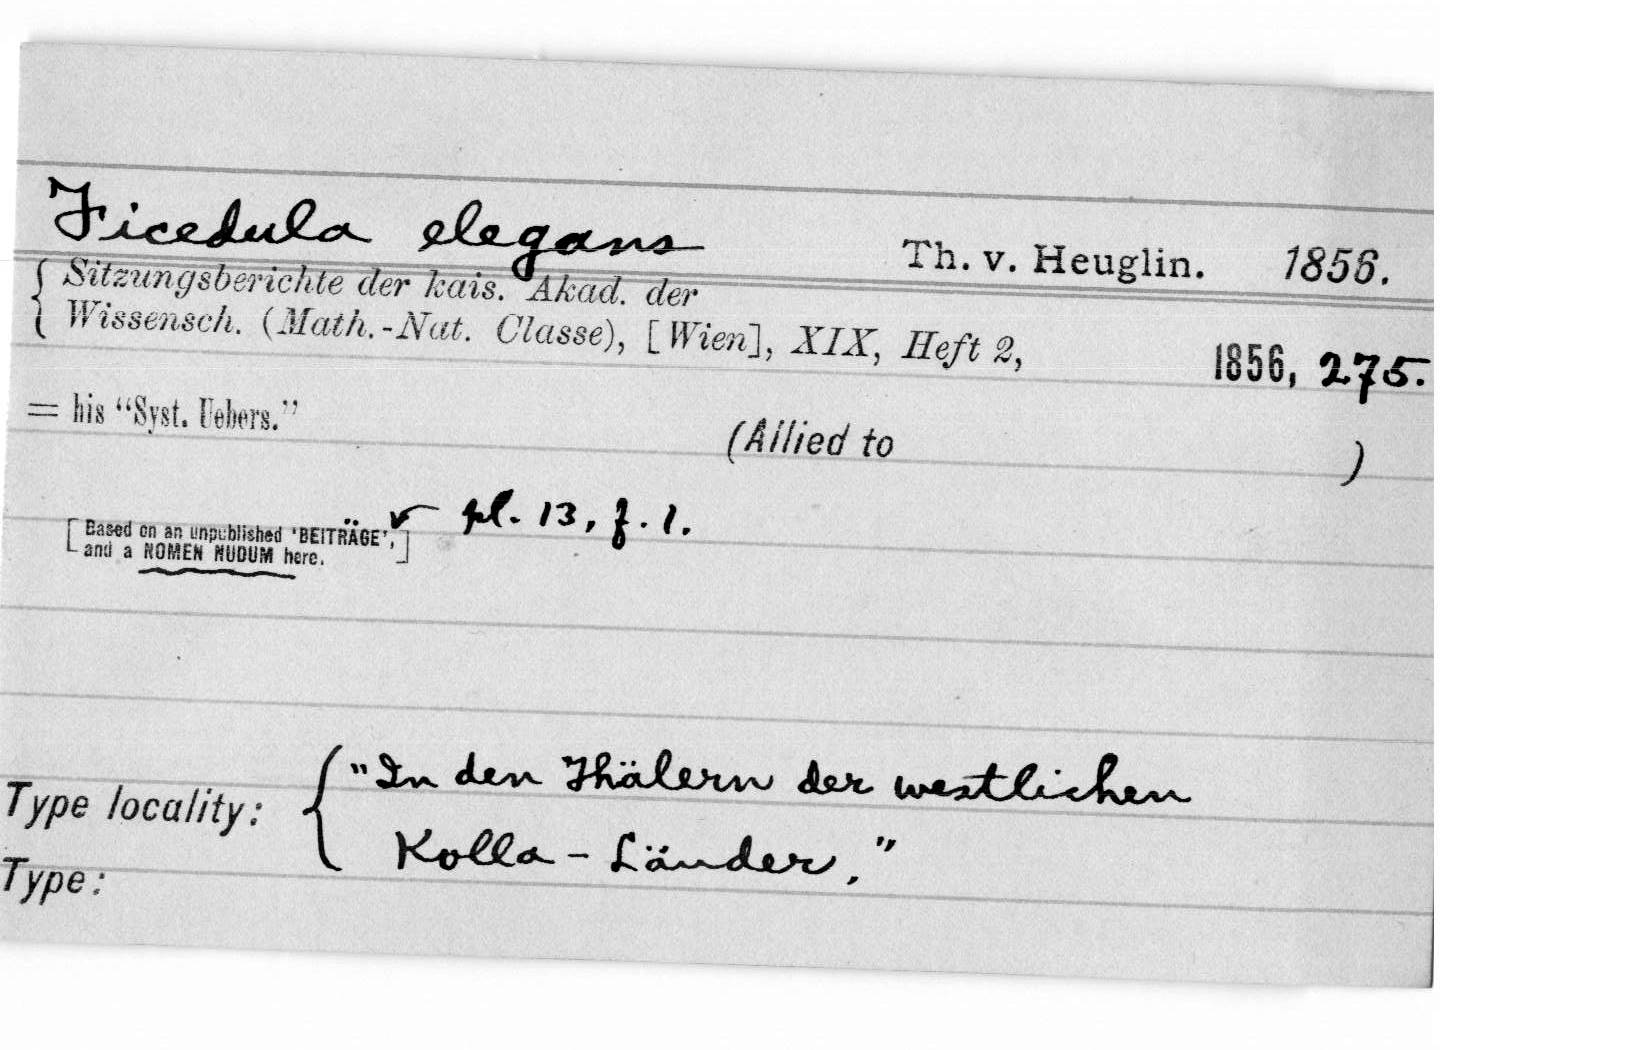 Ficedula elegans Th. v. Heuglin. 1856.
Sitzungsberichte der kais. Akad. der
Wissensch. (Math.-Nat. Classe), [Wien], XIX, Heft 2, 1856, 275.
= his “Syst. Uebers.” (Allied to )
pl. 13, f. 1.
[Based on an unpublished 'BEITRÄGE',
and a NOMEN NUDUM here.]
Type locality: "In den Thälern der westlichen
Kolla-Länder."
Type: